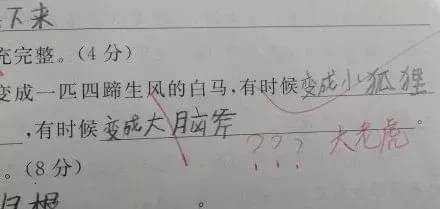 下来
充完整。(4分)
变成一匹四蹄生风的白马,有时候变成小狐狸
,有时候变成大脑斧。
??? 大老虎
。(8分)